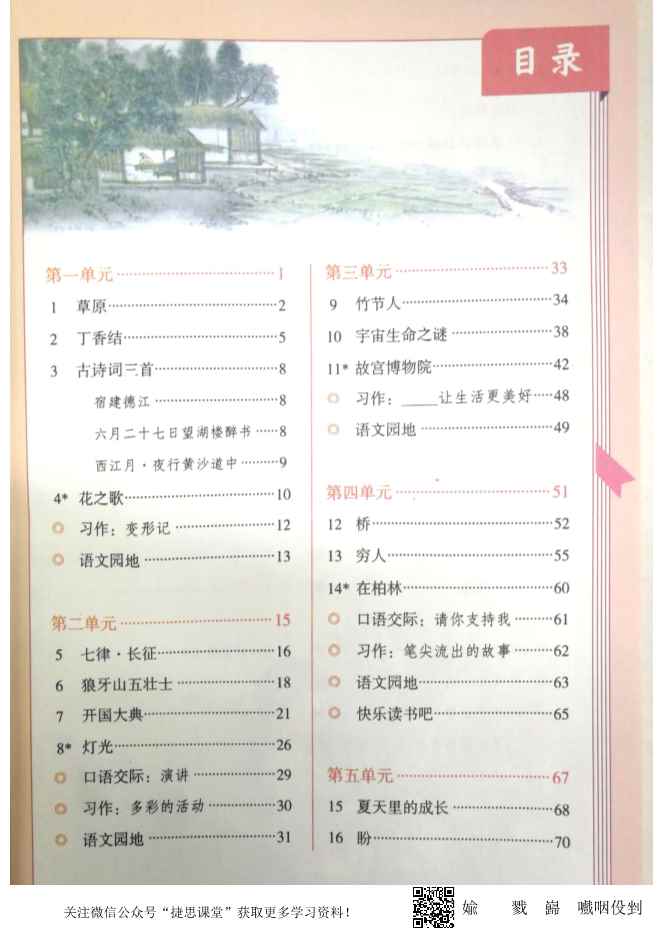 目录
第一单元……………………1
1 草原……………………2
2 丁香结……………………5
3 古诗词三首……………………8
宿建德江……………………8
六月二十七日望湖楼醉书……8
西江月·夜行黄沙道中………9
4* 花之歌……………………10
习作：变形记……………………12
语文园地……………………13
第二单元……………………15
5 七律·长征……………………16
6 狼牙山五壮士……………………18
7 开国大典……………………21
8* 灯光……………………26
口语交际：演讲……………………29
习作：多彩的活动……………………30
语文园地……………………31
第三单元……………………33
9 竹节人……………………34
10 宇宙生命之谜……………………38
11* 故宫博物院……………………42
习作：____让生活更美好……48
语文园地……………………49
第四单元……………………51
12 桥……………………52
13 穷人……………………55
14* 在柏林……………………60
口语交际：请你支持我………61
习作：笔尖流出的故事………62
语文园地……………………63
快乐读书吧……………………65
第五单元……………………67
15 夏天里的成长……………………68
16 盼……………………70
关注微信公众号“捷思课堂”获取更多学习资料！